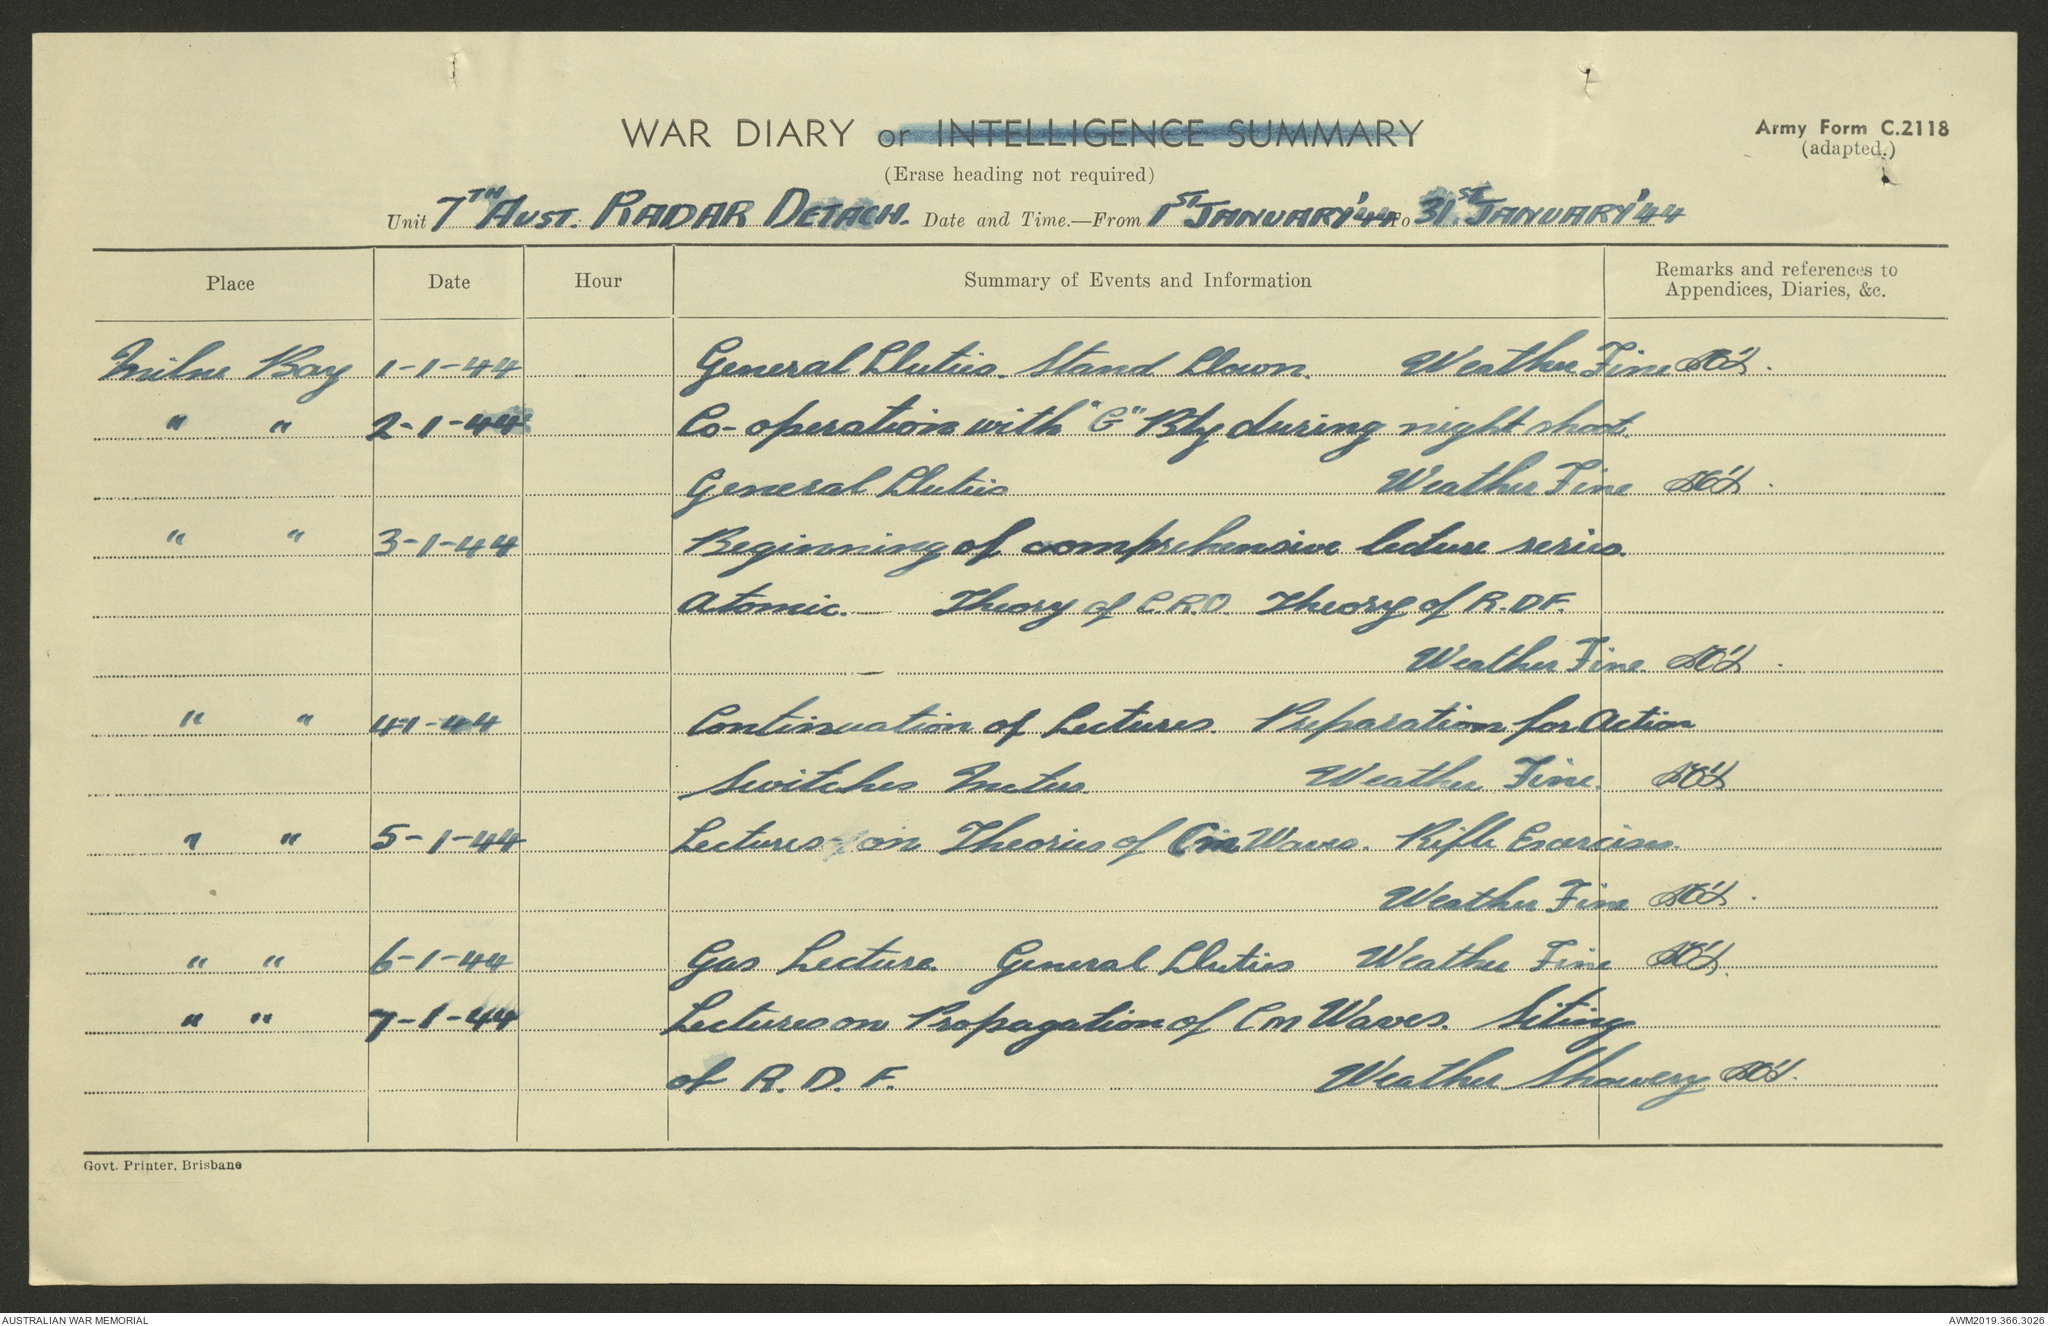 WAR DIARY or INTELLIGENCE SUMMARY
Army Form C.2118
(adapted.)
(Erase heading not required)
Unit 7TH AUST. RADAR DETACH. Date and Time.—From 1ST JANUARY '44 To 31ST JANUARY '44
Place Date Hour Summary of Events and Information Remarks and references to Appendices, Diaries, &c.
Milne Bay 1-1-44 General Duties. Stand Down. Weather Fine
" " 2-1-44 Co-operation with "G" Bty during night shoot.
General Duties Weather Fine
" " 3-1-44 Beginning of comprehensive lecture series.
Atomic. — Theory of C.R.O. Theory of R.D.F.
Weather Fine
" " 4-1-44 Continuation of Lectures. Preparation for Action
Switches Meters. Weather Fine.
" " 5-1-44 Lectures on Theories of Cm Waves. Rifle Exercises.
Weather Fine
" " 6-1-44 Gas Lecture. General Duties Weather Fine
" " 7-1-44 Lectures on Propagation of Cm Waves. Siting
of R.D.F. Weather Showery
Govt. Printer, Brisbane
AUSTRALIAN WAR MEMORIAL
AWM2019.366.3026